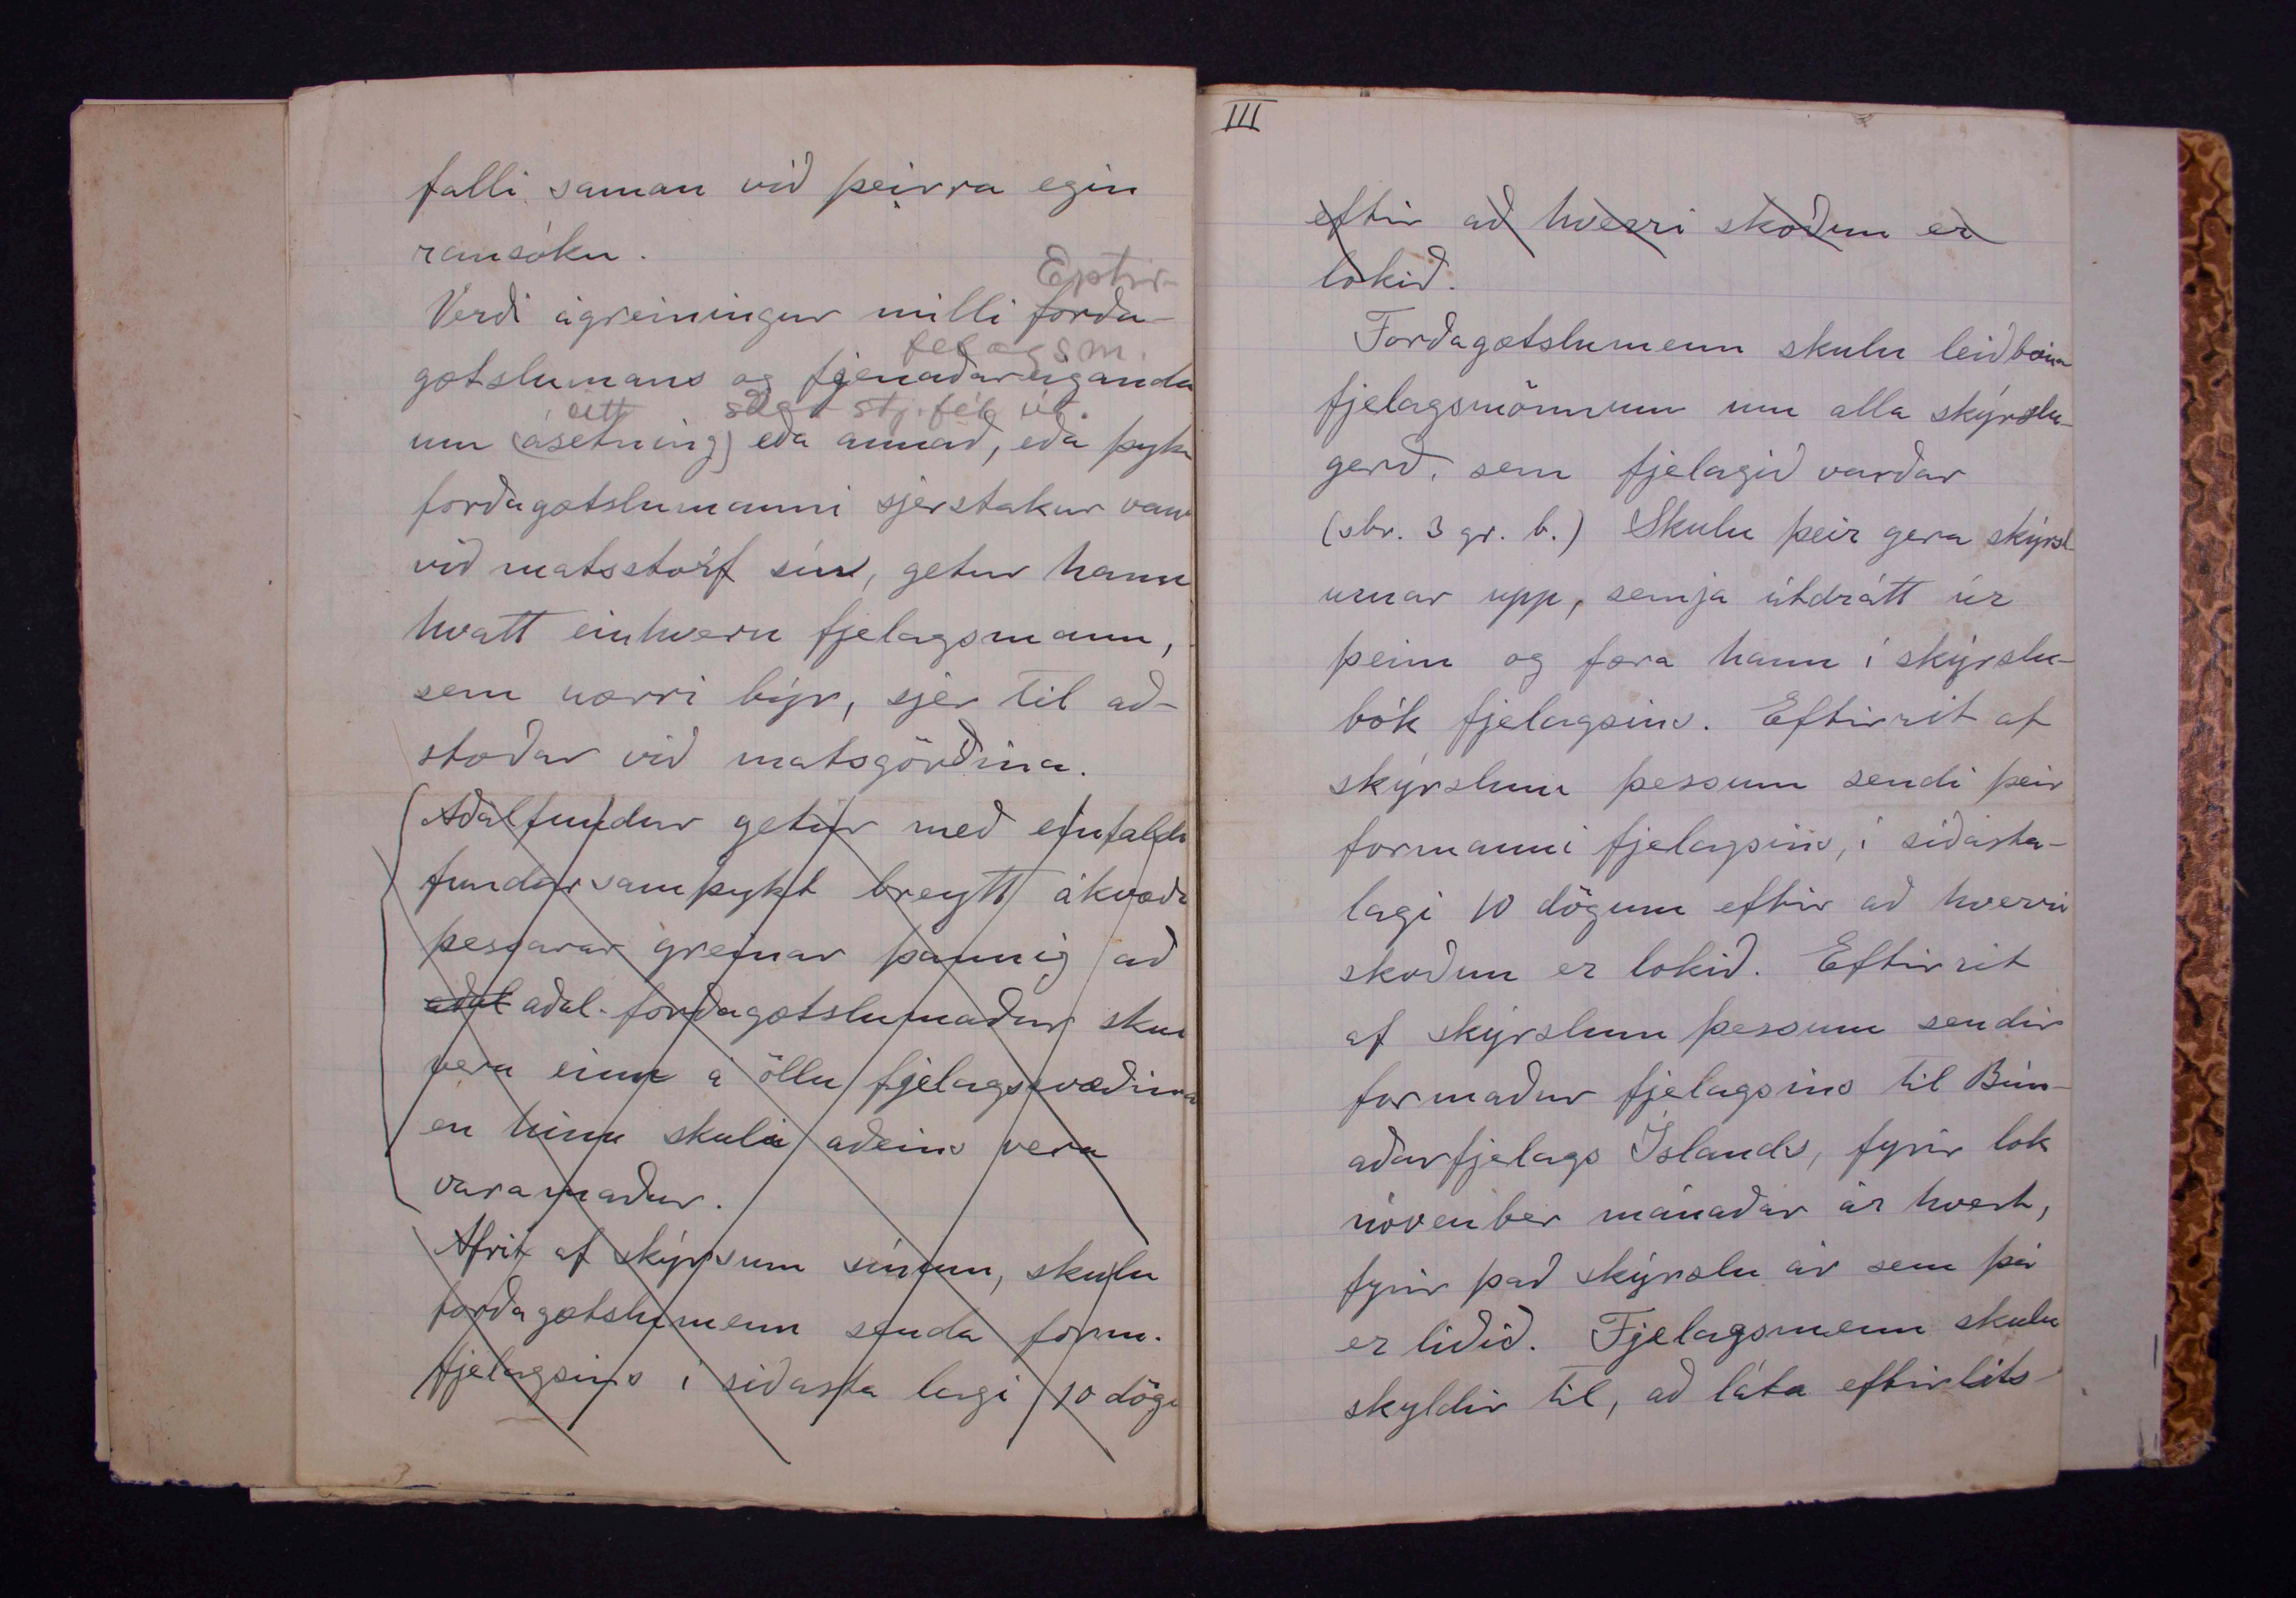 falli saman við þeirra egin
ransókn.
Eptir-
Verði ágreiningur milli forða-
felagsm.
gætslumans og fjenaðareiganda
um (ásetning) eða annað, eða þykir
forðagætslumanni sjerstakur vandi
við matsstörf sín, getur hann
hvatt einhvern fjelagsmann,
sem nærri býr, sjer til að-
stoðar við matsgörðina.
(Aðalfundur getur með einfaldri
fundarsamþykt breytt ákvæði
þessarar greinar þannig að
aðal aðal-forðagætslumaður skuli
vera einn á öllu fjelagssvæðinu
en hinn skuli aðeins vera
varamaður.
Afrit af skýrsum sínum, skulu
forðagætslumenn senda form.
fjelagsins í síðasta lagi 10 dögu
III
eftir að hverri skoðun er
lokið.
Forðagætslumenn skulu leiðbeina
fjelagsmönnum um alla skýrslu-
gerð, sem fjelagið varðar
(sbr. 3 gr. b.) Skulu þeir gera skýrsl-
urnar upp, semja útdrátt úr
þeim og færa hann í skýrslu-
bók fjelagsins. Eftirrit af
skýrslum þessum sendi þeir
formanni fjelagsins, í síðasta-
lagi 10 dögum eftir að hverri
skoðun er lokið. Eftirrit
af skýrslum þessum sendir
formaður fjelagsins til Bún-
aðarfjelags Íslands, fyrir lok
nóvember mánaðar ár hvert,
fyrir það skýrslu ár sem þá
er liðið. Fjelagsmenn skulu
skyldir til, að láta eftirlits-